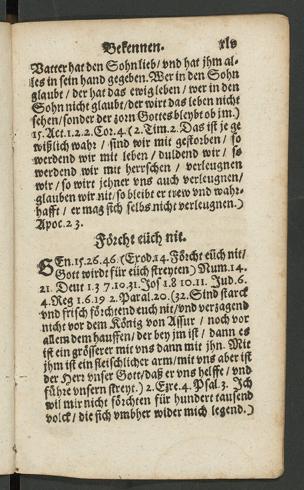 Bekennen. xlv
Vatter hat den Sohn lieb/ vnd hat jhm al-
les in sein hand gegeben. Wer in den Sohn
glaubt/ der hat das ewig leben/ wer in den
Sohn nicht glaubt/ der wirt das leben nicht
sehen/ sonder der zorn Gottes bleybt ob jm.)
15. Act. 1. 2. 2. Cor. 4. (2. Tim. 2. Das ist je ge
wißlich wahr/ sind wir mit gestorben/ so
werdend wir mit leben/ duldend wir/ so
werdend wir mit herrschen/ verleugnen
wir/ so wirt jehner vns auch verleugnen/
glauben wir nit/ so bleibt er trew vnd wahr-
hafft/ er mag sich selbs nicht verleugnen.)
Apoc. 2 3.
Förcht eüch nit.
GEn. 15. 26. 46. (Exod. 14. Förcht eüch nit/
Gott wirdt für eüch streyten) Num. 14.
21. Deut 1. 3 7. 10. 31. Jos 1. 8 10. 11. Jud. 6.
4. Reg 1. 6. 19 2. Paral. 20. (32. Sind starck
vnd frisch förchtend euch nit/ vnd verzagend
nicht vor dem König von Assur/ noch vor
allem dem hauffen/ der bey jm ist/ dann es
ist ein grösserer mit vns dann mit jhn. Mit
jhm ist ein fleischlicher arm/ mit vns aber ist
der Herr vnser Gott/ daß er vns helffe/ vnd
führe vnsern streyt.) 2. Ezre. 4. Psal. 3. Ich
wil mir nicht förchten für hundert tausend
volck/ die sich vmbher wider mich legend.)